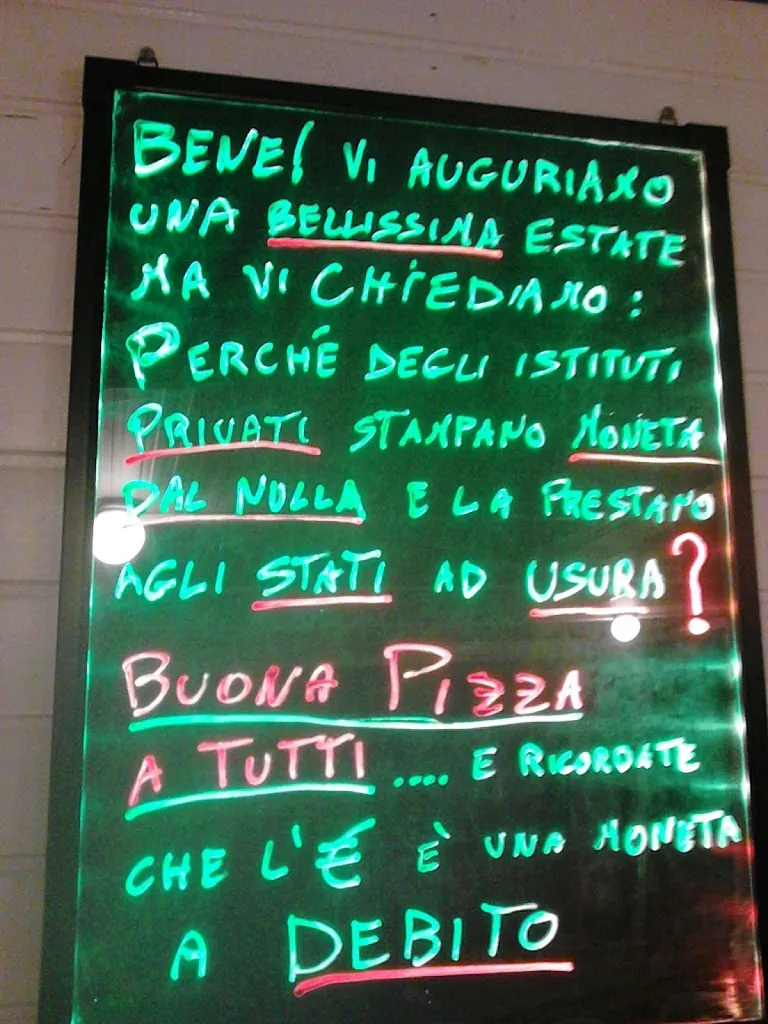 BENE! VI AUGURIAMO
UNA BELLISSIMA ESTATE
MA VI CHIEDIAMO:
PERCHÉ DEGLI ISTITUTI
PRIVATI STAMPANO MONETA
DAL NULLA E LA PRESTANO
AGLI STATI AD USURA?
BUONA PIZZA
A TUTTI.... E RICORDATE
CHE L'€ È UNA MONETA
A DEBITO